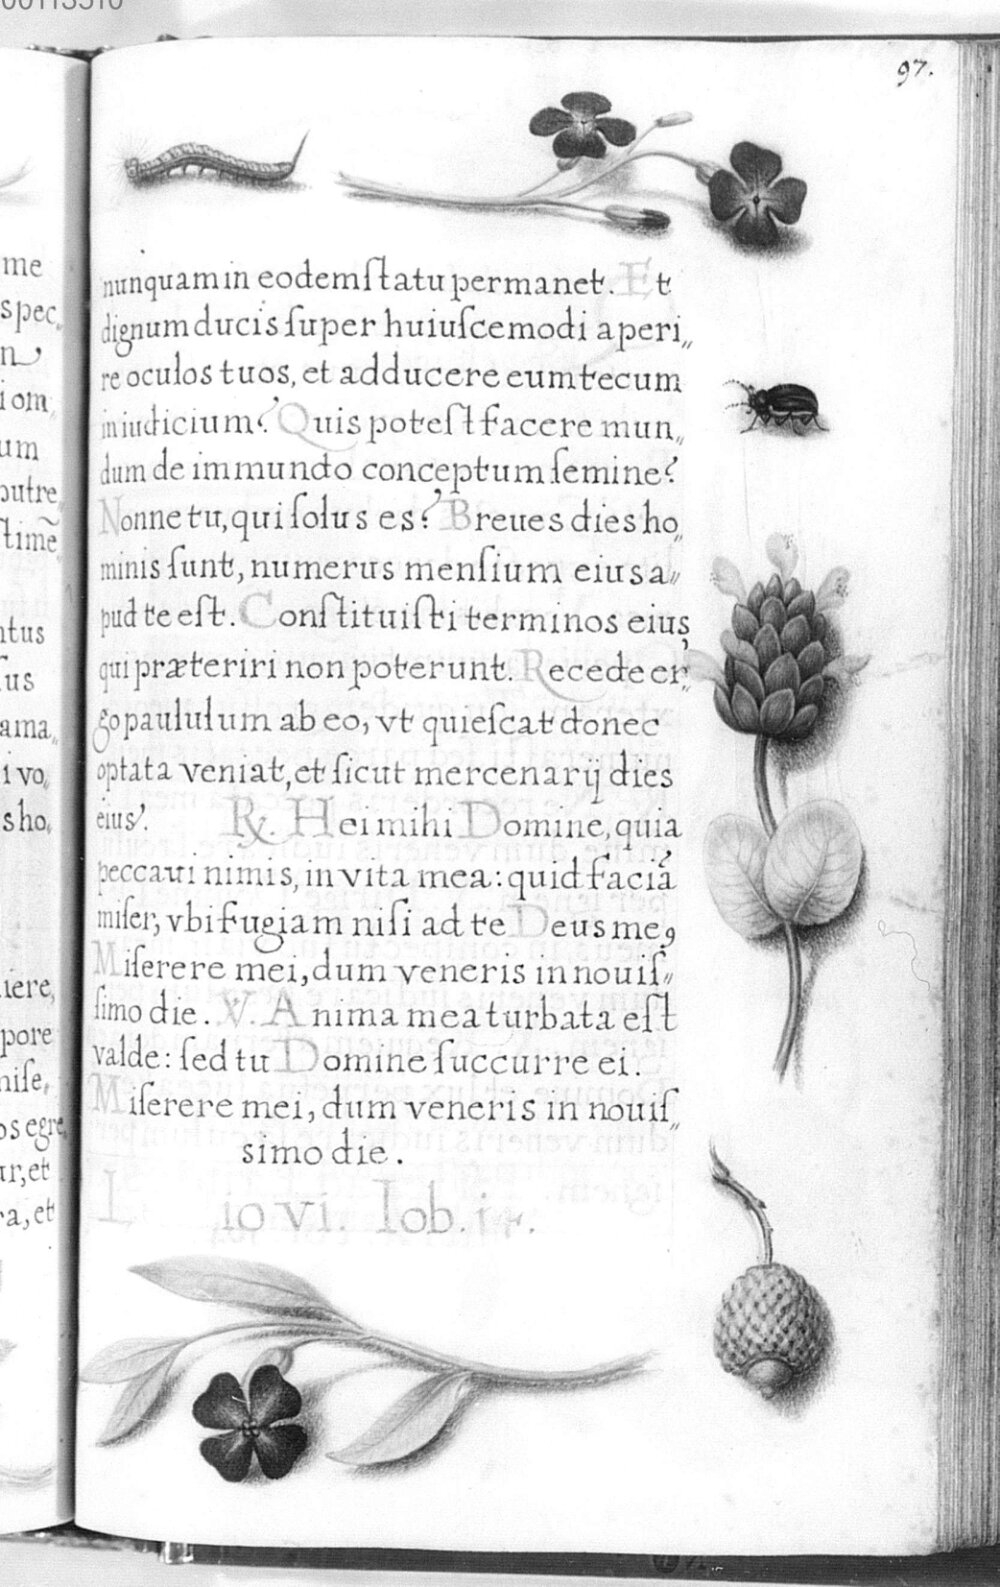 00113510
97.
me
spec,,
n
iom,
um
putre,,
ſtime͂,
ntus
ſus
ama,,
i vo,
s ho,
iere,
pore
niſe,
os egre,
ur, et
ra, et
nunquam in eodem ſtatu permanet. Et
dignum ducis ſuper huiuſcemodi aperi,,
re oculos tuos, et adducere eum tecum
in iudicium? Quis poteſt facere mun,,
dum de immundo conceptum ſemine?
Nonne tu, qui ſolus es? Breues dies ho,,
minis ſunt, numerus menſium eius a,,
pud te eſt. Conſtituiſti terminos eius,
qui præteriri non poterunt. Recede er,,
go paululum ab eo, vt quieſcat donec
optata veniat, et ſicut mercenarij dies
eius. ℟. Hei mihi Domine, quia
peccaui nimis, in vita mea: quid faciã
miſer, vbi fugiam niſi ad te Deus meꝯ
Miſerere mei, dum veneris in nouiſ,,
ſimo die. V. Anima mea turbata eſt
valde: ſed tu Domine ſuccurre ei.
Miſerere mei, dum veneris in nouiſ,,
simo die.
Lio vi. Iob. i4.